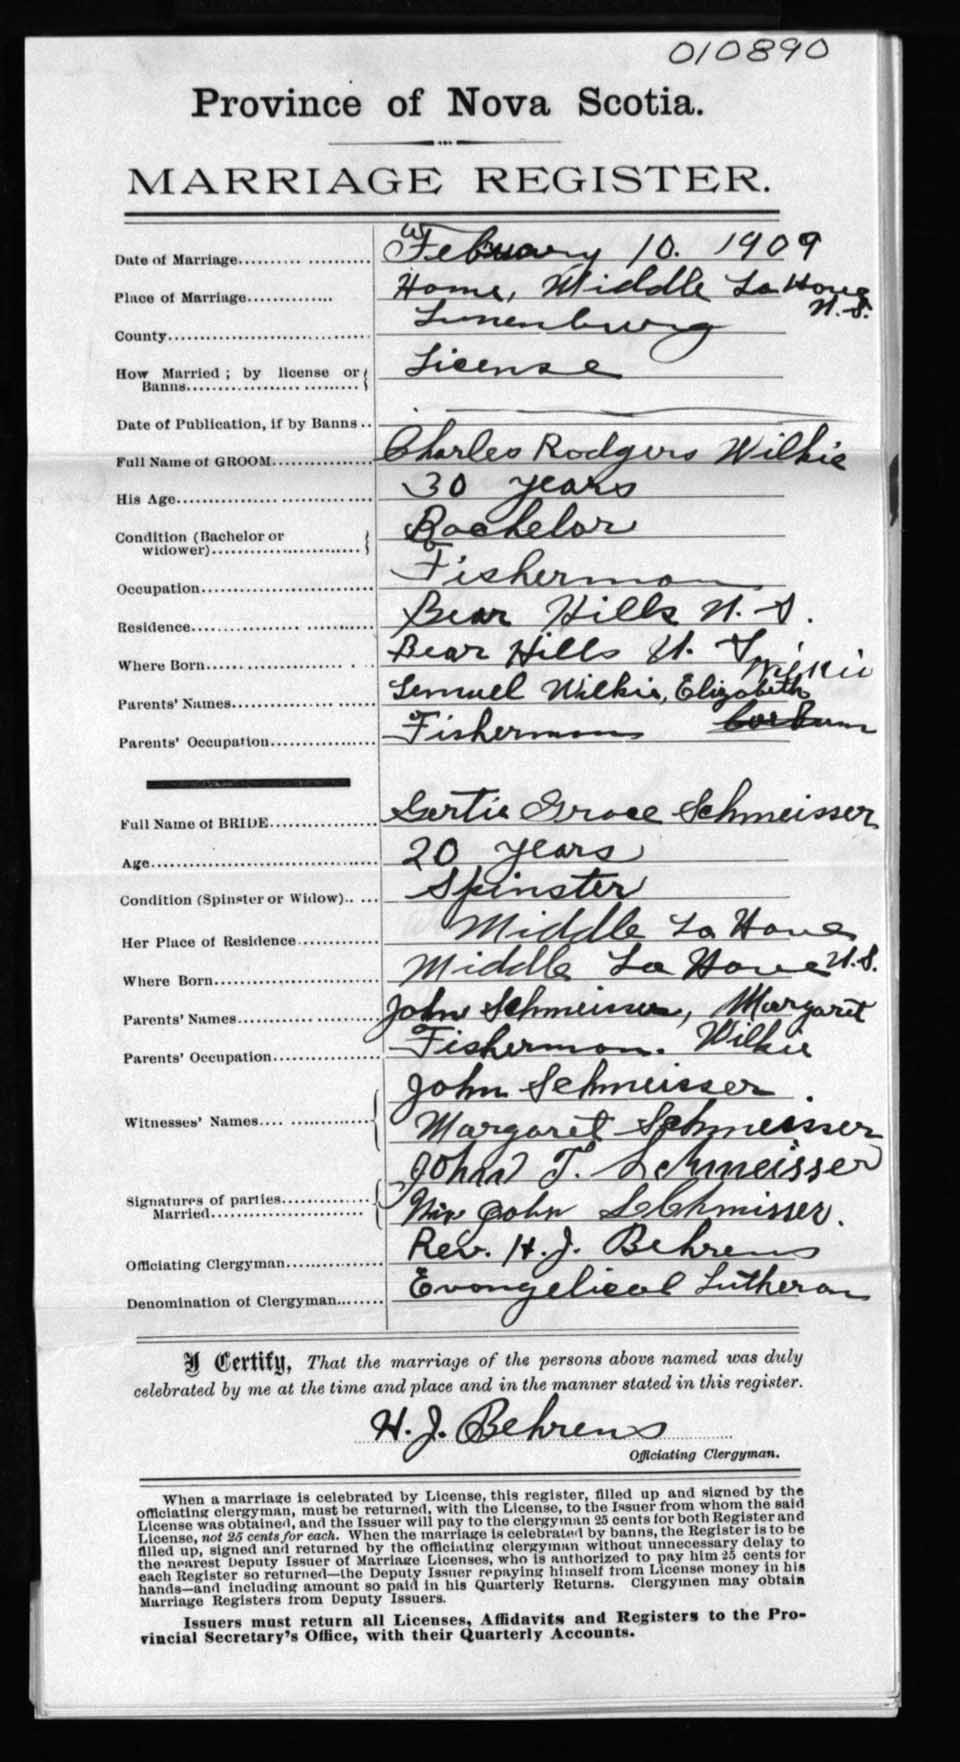 010890
Province of Nova Scotia.
MARRIAGE REGISTER.
Date of Marriage.......... February 10. 1909
Place of Marriage............. Home, Middle La Have N.S.
County.............................. Lunenburg
How Married ; by license or Banns........................ License
Date of Publication, if by Banns..
Full Name of GROOM............... Charles Rodgers Wilkie
His Age.............................. 30 years
Condition (Bachelor or widower)...................... Bachelor
Occupation.......................... Fisherman
Residence........................... Bear Hills N. S.
Where Born......................... Bear Hills N. S.
Parents' Names..................... Lemuel Wilkie, Elizabeth Wilkie
Parents' Occupation............... Fisherman
Full Name of BRIDE............... Gertie Grace Schmeisser
Age................................. 20 years
Condition (Spinster or Widow)..... Spinster
Her Place of Residence............ Middle La Have
Where Born........................ Middle La Have N.S.
Parents' Names.................... John Schmeisser, Margaret Wilkie
Parents' Occupation............... Fisherman.
Witnesses' Names.... ............ John Schmeisser
Margaret Schmeisser
Signatures of parties Married...................... John T. Schmeisser
John Schmisser.
Officiating Clergyman............... Rev. H. J. Behrens
Denomination of Clergyman....... Evangelical Lutheran
I Certify, That the marriage of the persons above named was duly
celebrated by me at the time and place and in the manner stated in this register.
H. J. Behrens
Officiating Clergyman.
When a marriage is celebrated by License, this register, filled up and signed by the
officiating clergyman, must be returned, with the License, to the Issuer from whom the said
License was obtained, and the Issuer will pay to the clergyman 25 cents for both Register and
License, not 25 cents for each. When the marriage is celebrated by banns, the Register is to be
filled up, signed and returned by the officiating clergyman without unnecessary delay to
the nearest Deputy Issuer of Marriage Licenses, who is authorized to pay him 25 cents for
each Register so returned—the Deputy Issuer repaying himself from License money in his
hands—and including amount so paid in his Quarterly Returns. Clergymen may obtain
Marriage Registers from Deputy Issuers.
Issuers must return all Licenses, Affidavits and Registers to the Pro-
vincial Secretary's Office, with their Quarterly Accounts.